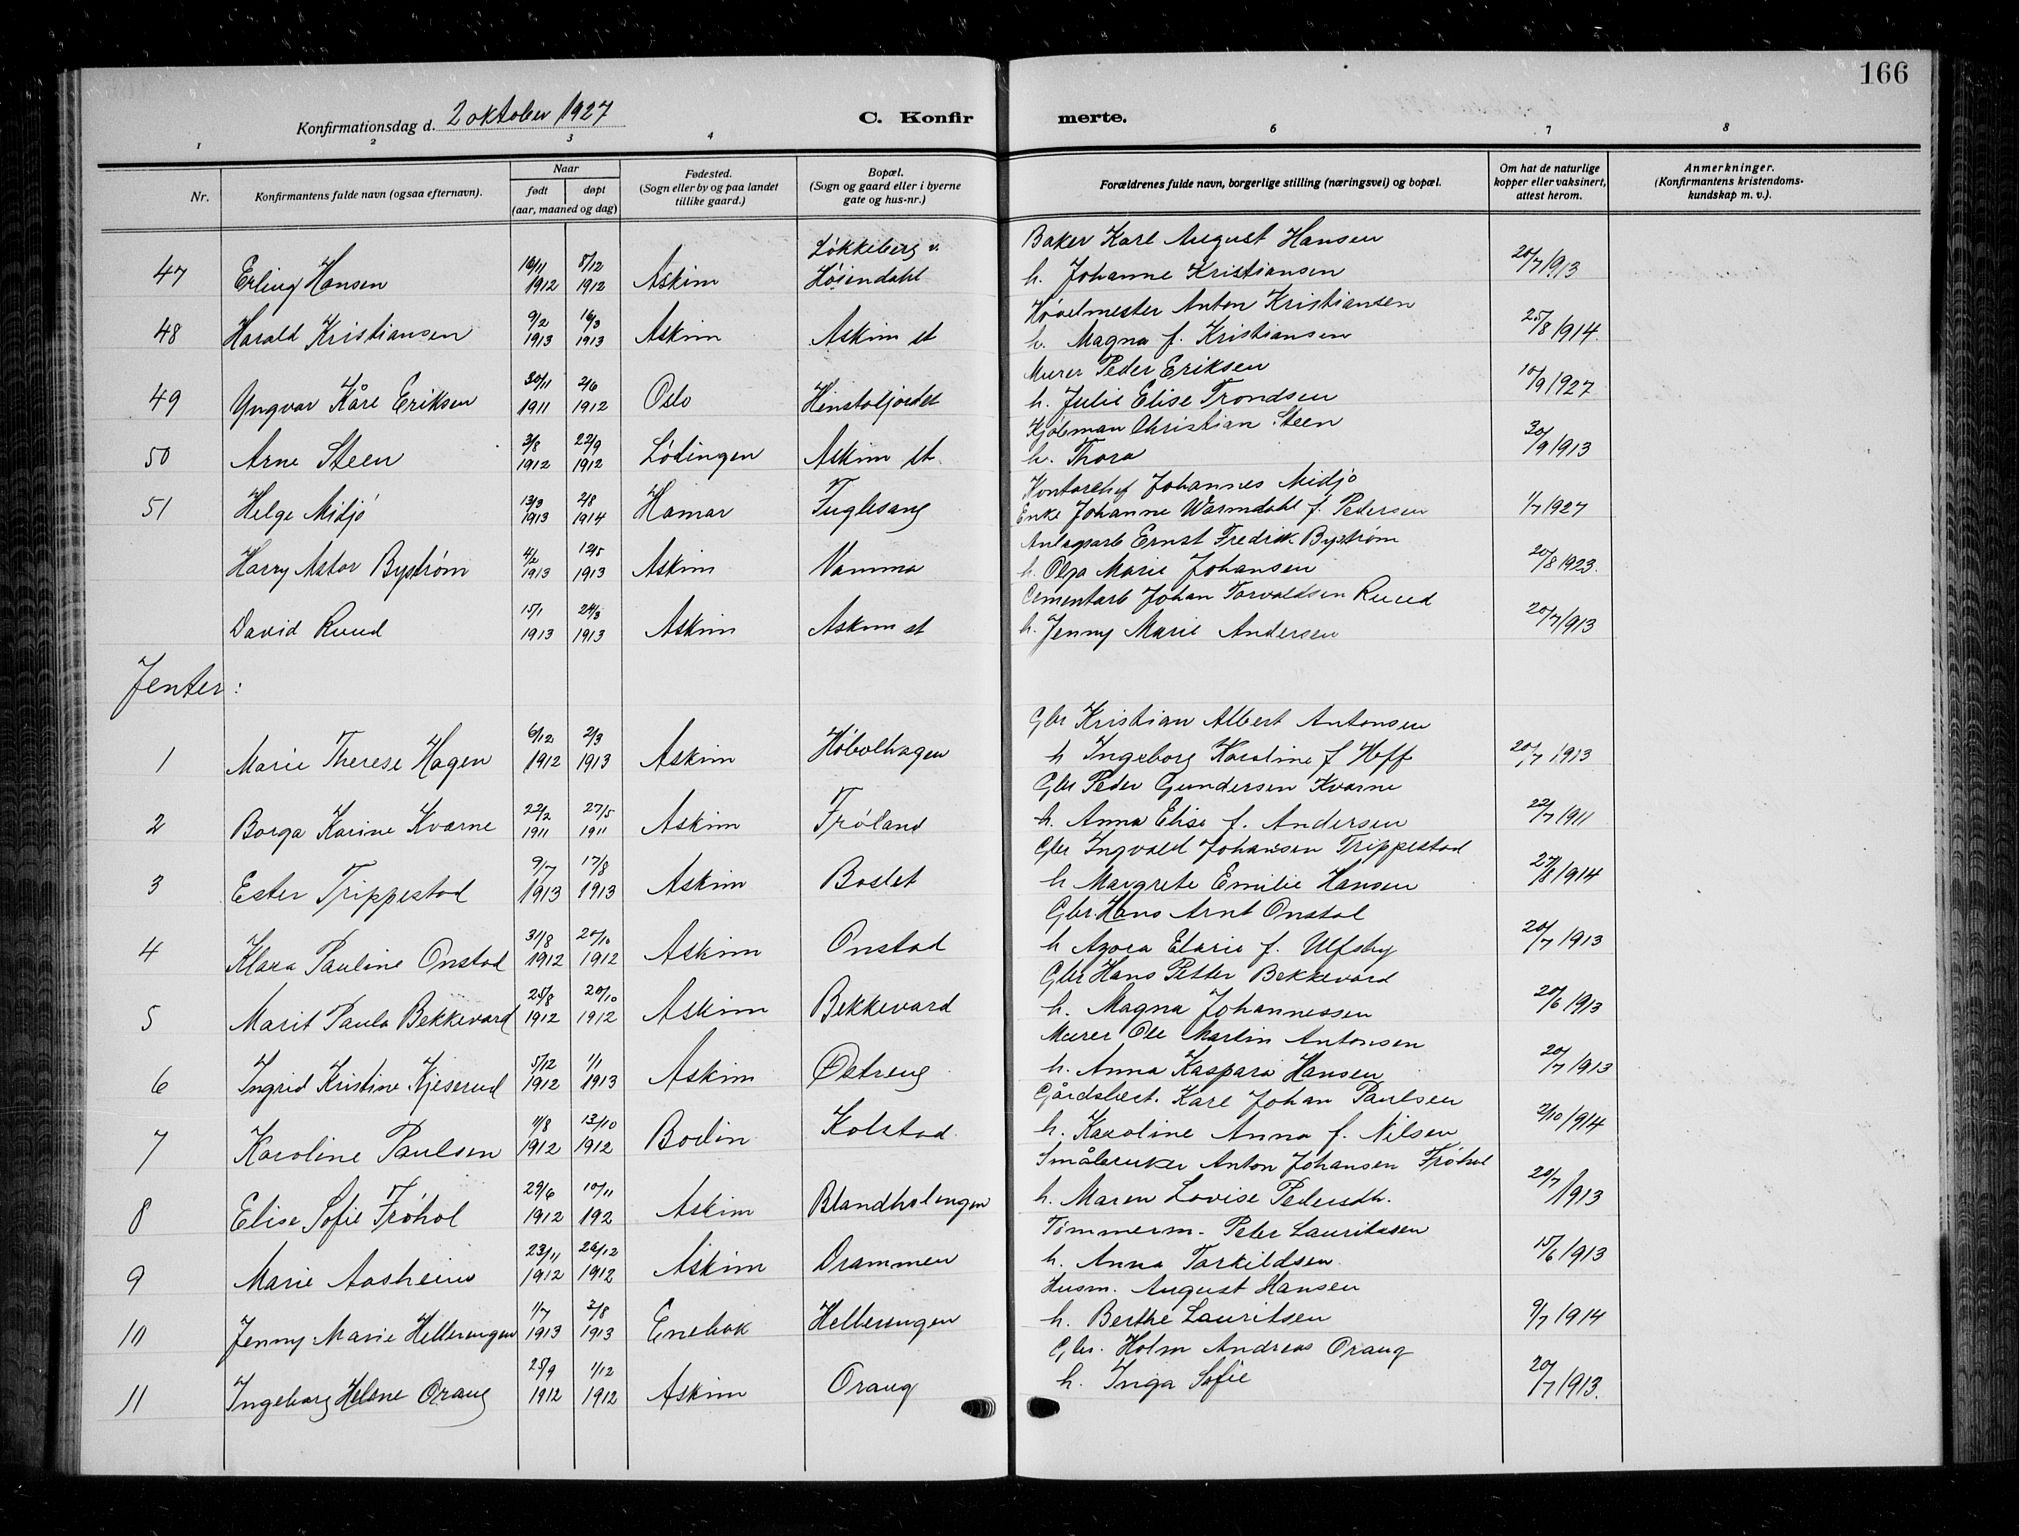 166
Konfirmationsdag d. 2 oktober 1927
C. Konfirmerte.
1 2 3 4 6 7 8
Nr.
Konfirmantens fulde navn (ogsaa efternavn).
Naar
født døpt
(aar, maaned og dag)
Fødested.
(Sogn eller by og paa landet
tillike gaard.)
Bopæl.
(Sogn og gaard eller i byerne
gate og hus-nr.)
Forældrenes fulde navn, borgerlige stilling (næringsvei) og bopæl.
Om hat de naturlige
kopper eller vaksinert,
attest herom.
Anmerkninger.
(Konfirmantens kristendoms-
kundskap m. v.).
Løkkeberg v. Baker Karl August Hansen
47 Erling Hansen 16/11 1912 8/12 1912 Askim Høiendahl h. Johanne Kristiansen 20/7 1913
Høvelmester Anton Kristiansen
48 Harald Kristiansen 9/2 1913 16/3 1913 Askim Askim st h. Magna f. Kristiansen 25/8 1914.
Murer Peder Eriksen
49 Yngvar Kåre Eriksen 30/11 1911 2/6 1912 Oslo h. Julie Elise Trondsen 10/9 1927
Kjøbman Christian Steen
50 Arne Steen 3/8 1912 22/9 1912 Lødingen Askim st. h. Thora 30/9 1913
Kontorchef Johannes Midjo
51 Helge Midjo 13/3 1913 2/8 1914 Hamar Fuglesang Enke Johanne Warmdahl f. Pedersen 1/7 1927
Anlagsarb Ernst Fredrik Bystrøm
Harry Astor Bystrøm 4/2 1913 12/5 1913 Askim Vamma h. Olga Marie Johansen 20/8 1923.
Cementarb Johan Torvaldsen Ruud
David Ruud 15/1 1913 24/3 1913 Askim Askim st h. Jenny Marie Andersen 20/7 1913
Jenter:
Gbr Kristian Albert Antonsen
1 Marie Therese Hagen 6/12 1912 2/3 1913 Askim Høbolhagen h Ingeborg Karoline f Hoff 20/7 1913
Gbr Peder Gundersen Kvarne
2 Borga Karine Kvarne 22/2 1911 27/5 1911 Askim Frøland h. Anna Elise f. Andersen 22/7 1911
Gbr Ingvald Johansen Trippestad
3 Ester Trippestad 9/7 1913 17/8 1913 Askim Baslet h Margrete Emilie Hansen 27/8 1914
Gbr. Hans Arnt Onstad
4 Klara Pauline Onstad 31/8 1912 20/10 1912 Askim Onstad h Elarie f. Ulfsby 20/7 1913
Gbr Hans Petter Bekkevard
5 Marit Paula Bekkevard 25/8 1912 20/10 1912 Askim Bekkevard h. Magna Johannessen 20/6 1913
Murer Ole Martin Antonsen
6 Ingrid Kristine Kjeserud 5/12 1912 1/1 1913 Askim Østreng h. Anna Kaspara Hansen 20/7 1913
Gårdsbest. Karl Johan Paulsen
7 Karoline Paulsen 11/8 1912 13/10 1912 Bodin Kolstad. h. Karoline Anna f. Nilsen 2/10 1914
Småbruker Anton Johansen Frøhol
8 Elise Sofie Frøhol 29/6 1912 10/11 192 Askim Blandholengen h. Maren Lovise Pedersdh. 20/7 1913
Tømmerm. Peter Lauritssen
9 Marie Aasheim 23/11 1912 26/12 1912 Askim Drammen h. Anna Torkildsen. 15/6 1913
Husm. August Hansen
10 Jenny Marie Hellerengen 1/7 1913 3/8 1913 Enebak Hellerengen h. Berthe Lauritsen 9/7 1914
Gbr. Holm Andreas Oraug
11 Ingeborg Helene Oraug 25/9 1912 1/12 1912 Askim Oraug h. Inga Sofie 20/7 1913.